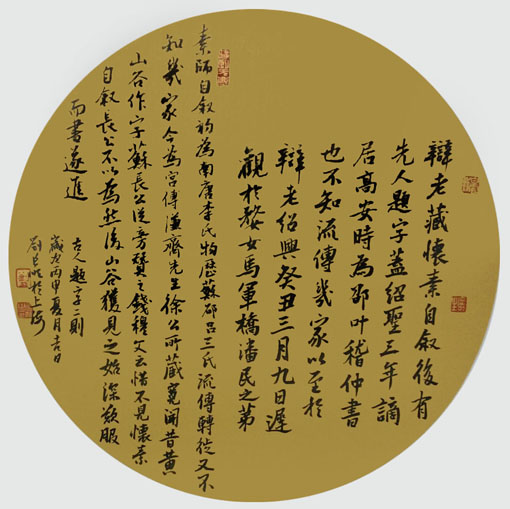 辯老藏懷素自叙後有
先人題字蓋紹聖三年謫
居高安時為邵叶稽仲書
也不知流傳幾家以至於
辯老紹興癸丑三月九日遲
觀於婺女馬軍橋潘氏之第
素師自叙初為南唐李氏物歷蘇邵呂三氏流傳轉徙又不
知幾家今為宮傅謙齋先生徐公所藏寬聞昔黃
山谷作字蘇長公從旁贊之錢穆父云惜不見懷素
自叙長公不以為然後山谷獲見之始深歎服
而書遂進
古人題字二則
歲次丙申夏月吉日
於上海